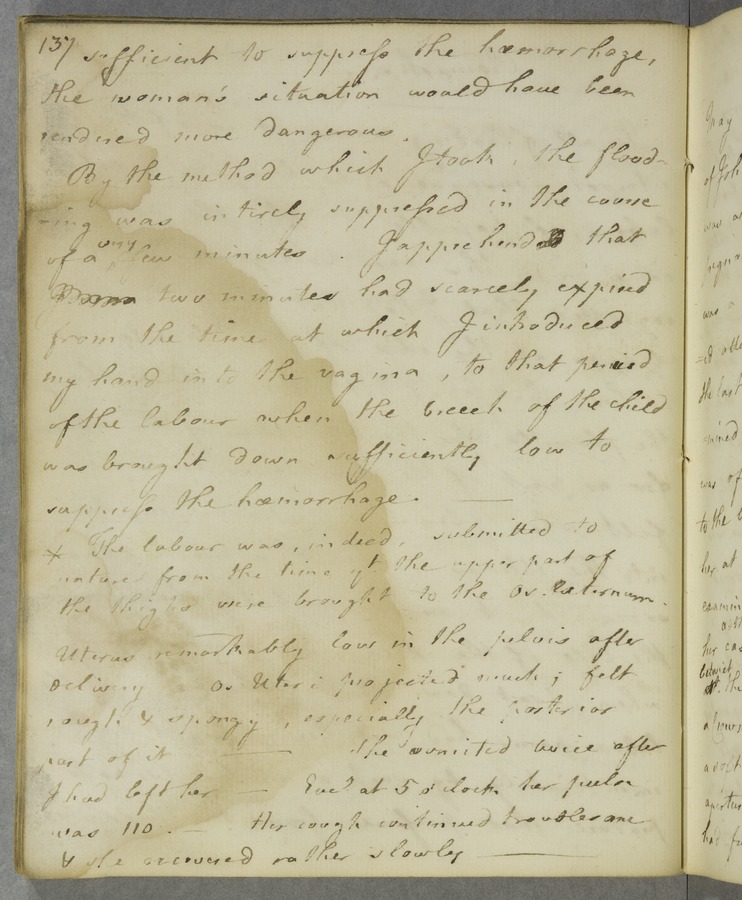 137
sufficient to suppress the hæmorrhage,
the woman's situation would have been
rendered more dangerous.
By the method which I took, the flood-
-ing was intirely suppressed in the course
of a very few minutes. I apprehend that
two minutes had scarcely expired
from the time at which I introduced
my hand into the vagina, to that period
of the labour when the breech of the child
was brought down sufficiently low to
suppress the hæmorrhage. —
x The labour was, indeed, submitted to
nature from the time yt the upper part of
the thighs were brought to the Os Externum.
Uterus remarkably low in the pelvis after
delivery Os Uteri projected much; felt
rough & spongy, especially the posterior
part of it — She vomited twice after
I had left her — Eveg at 5 o'clock her pulse
was 110. — Her cough continued troublesome
& she recovered rather slowly —
May
was
was a
the last
was of
to the
her at
her
the